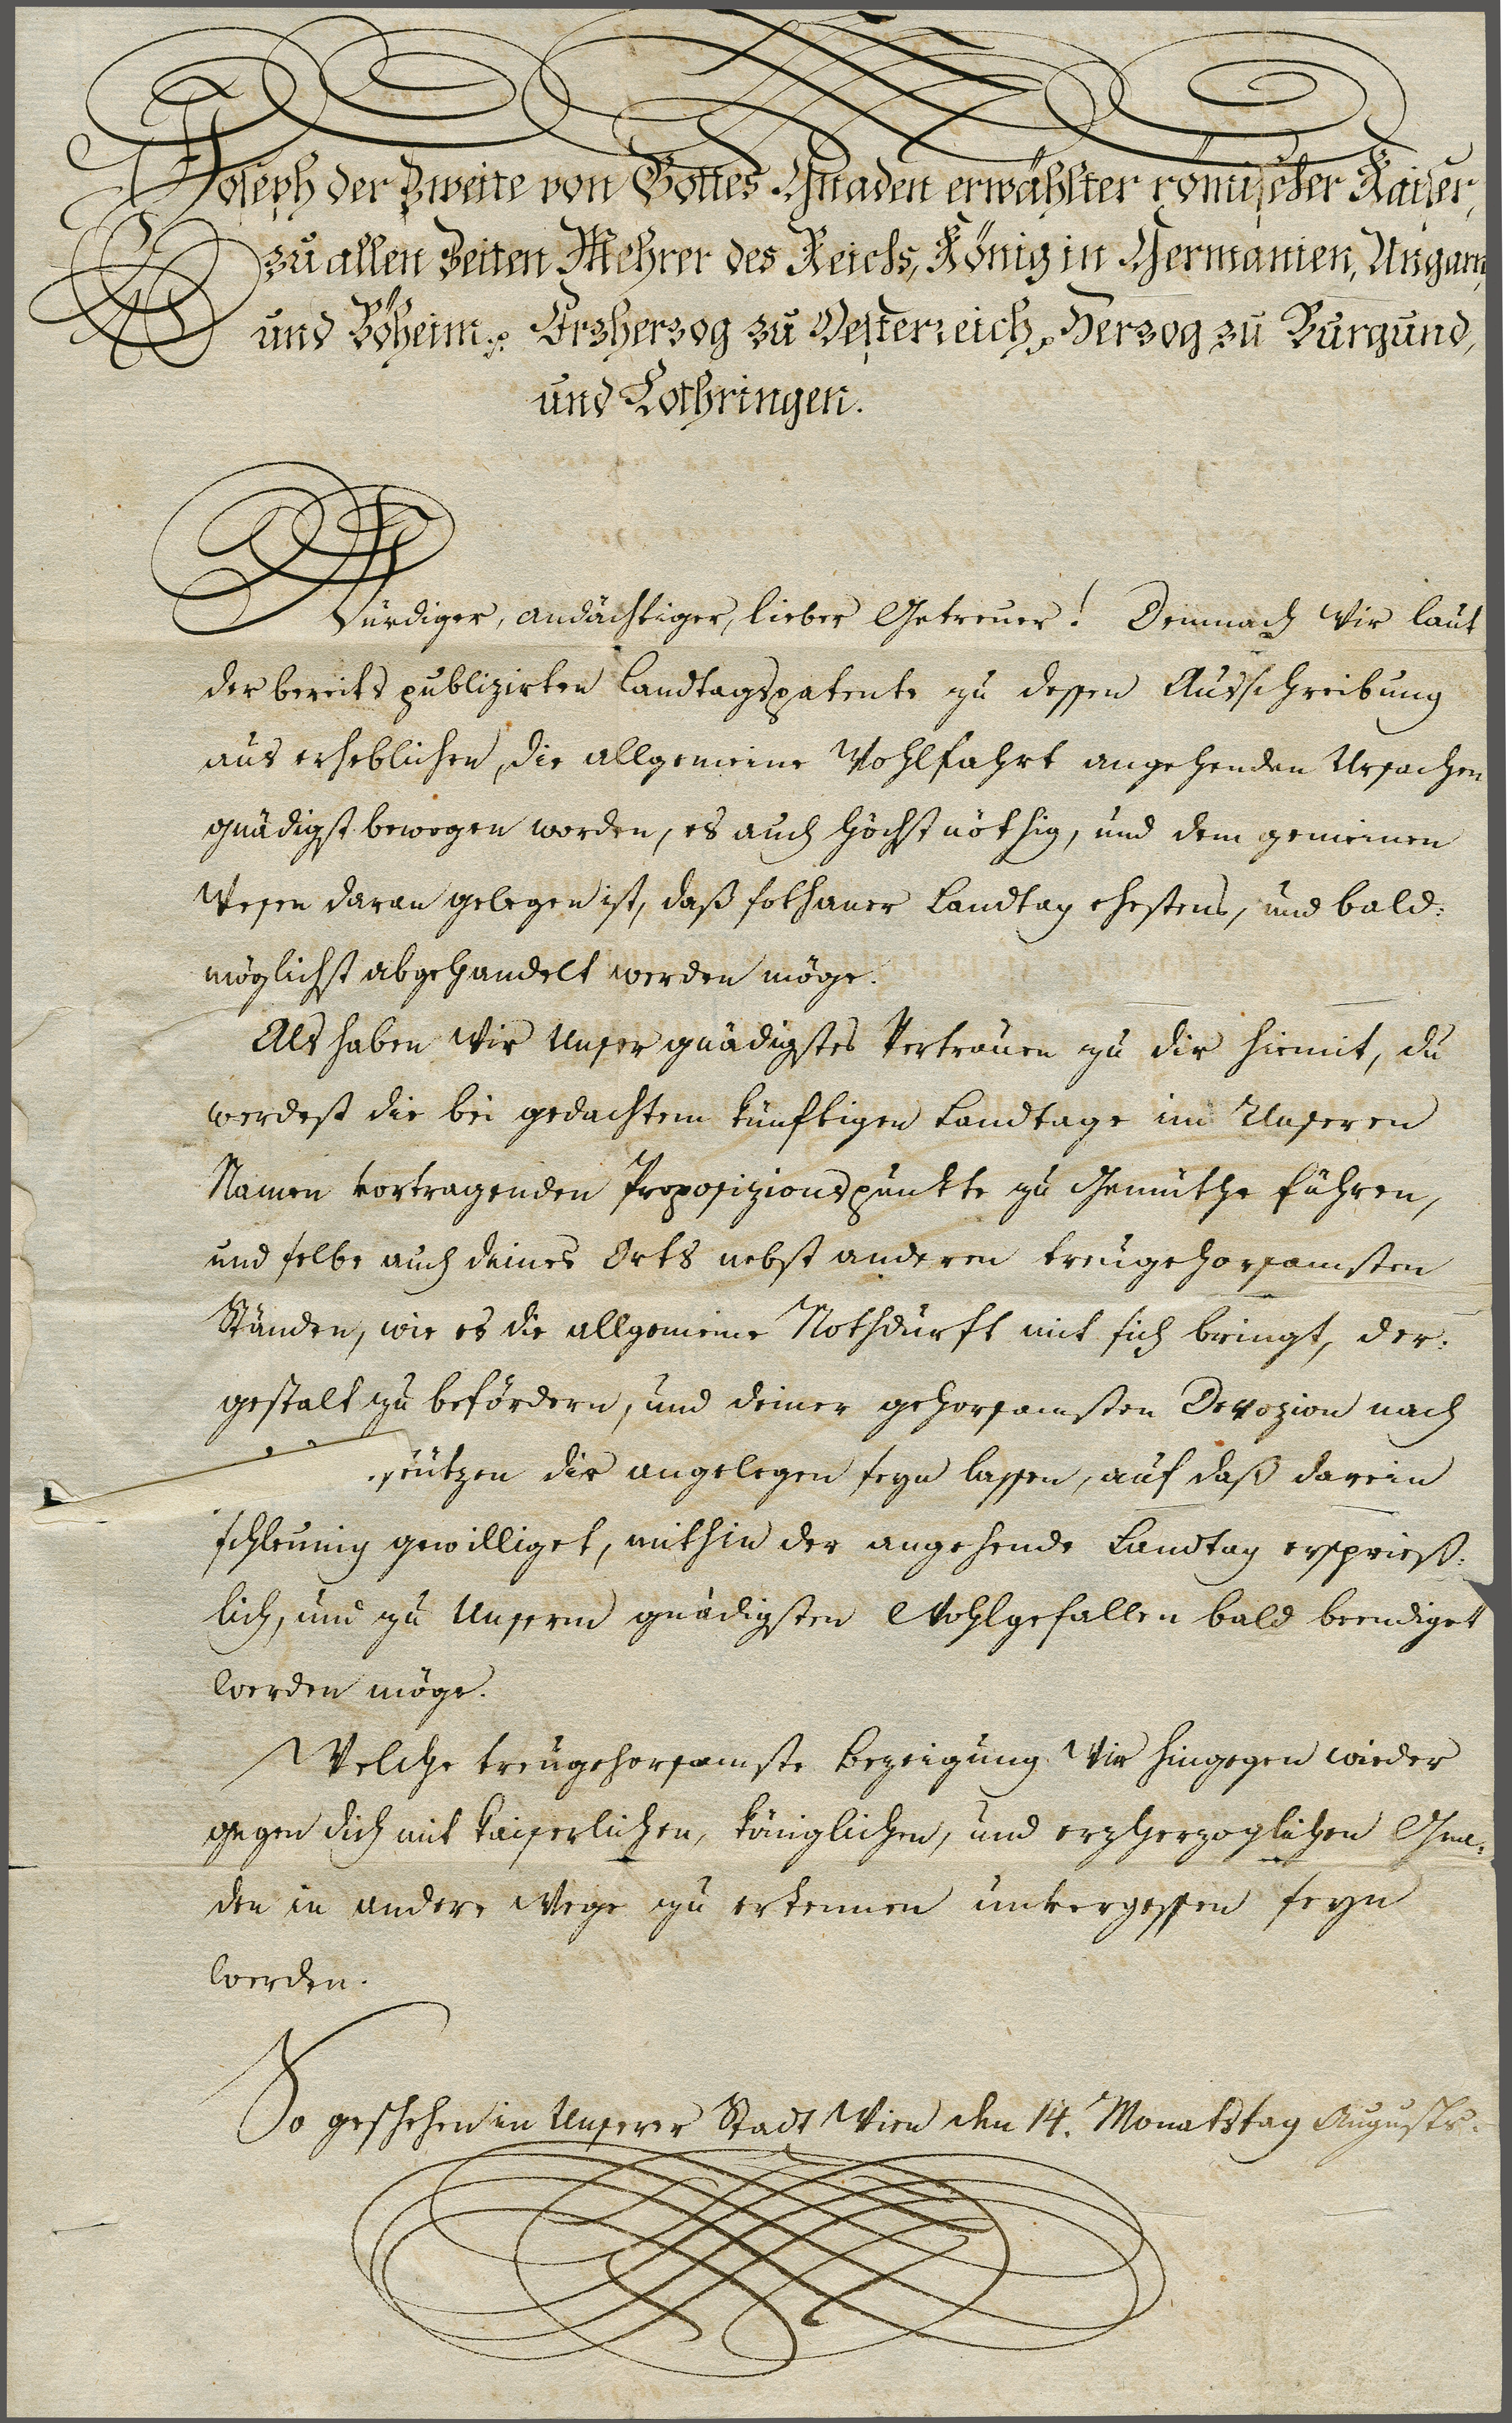 Joseph der Zweite von Gottes Gnaden erwählter römischer Kaiser,
zu allen Zeiten Mehrer des Reichs, König in Germanien, Ungarn,
und Böheim ꝛc. Erzherzog zu Oesterreich, Herzog zu Burgund,
und Lothringen.
Würdiger, andächtiger, lieber Getreuer! Demnach Wir laut
der bereits publizirten Landtagspatente zu dessen Ausschreibung
aus erheblichen, die allgemeine Wohlfahrt angehenden Ursachen
gnädigst bewogen worden, es auch höchst nöthig, und dem gemeinen
Wesen daran gelegen ist, daß sothaner Landtag ehestens, und bald:
möglichst abgehandelt werden möge.
Als haben Wir Unser gnädigstes Vertrauen zu dir hiemit, du
werdest die bei gedachtem künftigen Landtage im Unseren
Namen vortragenden Proposizionspunkte zu Gemüthe führen,
und selbe auch deines Orts nebst anderen treugehorsamsten
Ständen, wie es die allgemeine Nothdurft mit sich bringt, der:
gestalt zu befördern, und deiner gehorsamsten Devozion nach
dir angelegen seyn lassen, auf daß darein
schleunig gewilliget, mithin der angehende Landtag ersprieß:
lich, und zu Unserm gnädigsten Wohlgefallen bald beendiget
werden möge.
Welche treugehorsamste Bezeigung Wir hingegen wieder
gegen dich mit kaiserlichen, königlichen, und erzherzoglichen Gna:
den in andere Wege zu erkennen unvergessen seyn
werden.
So geschehen in Unserer Stadt Wien den 14. Monatstag Augusts.